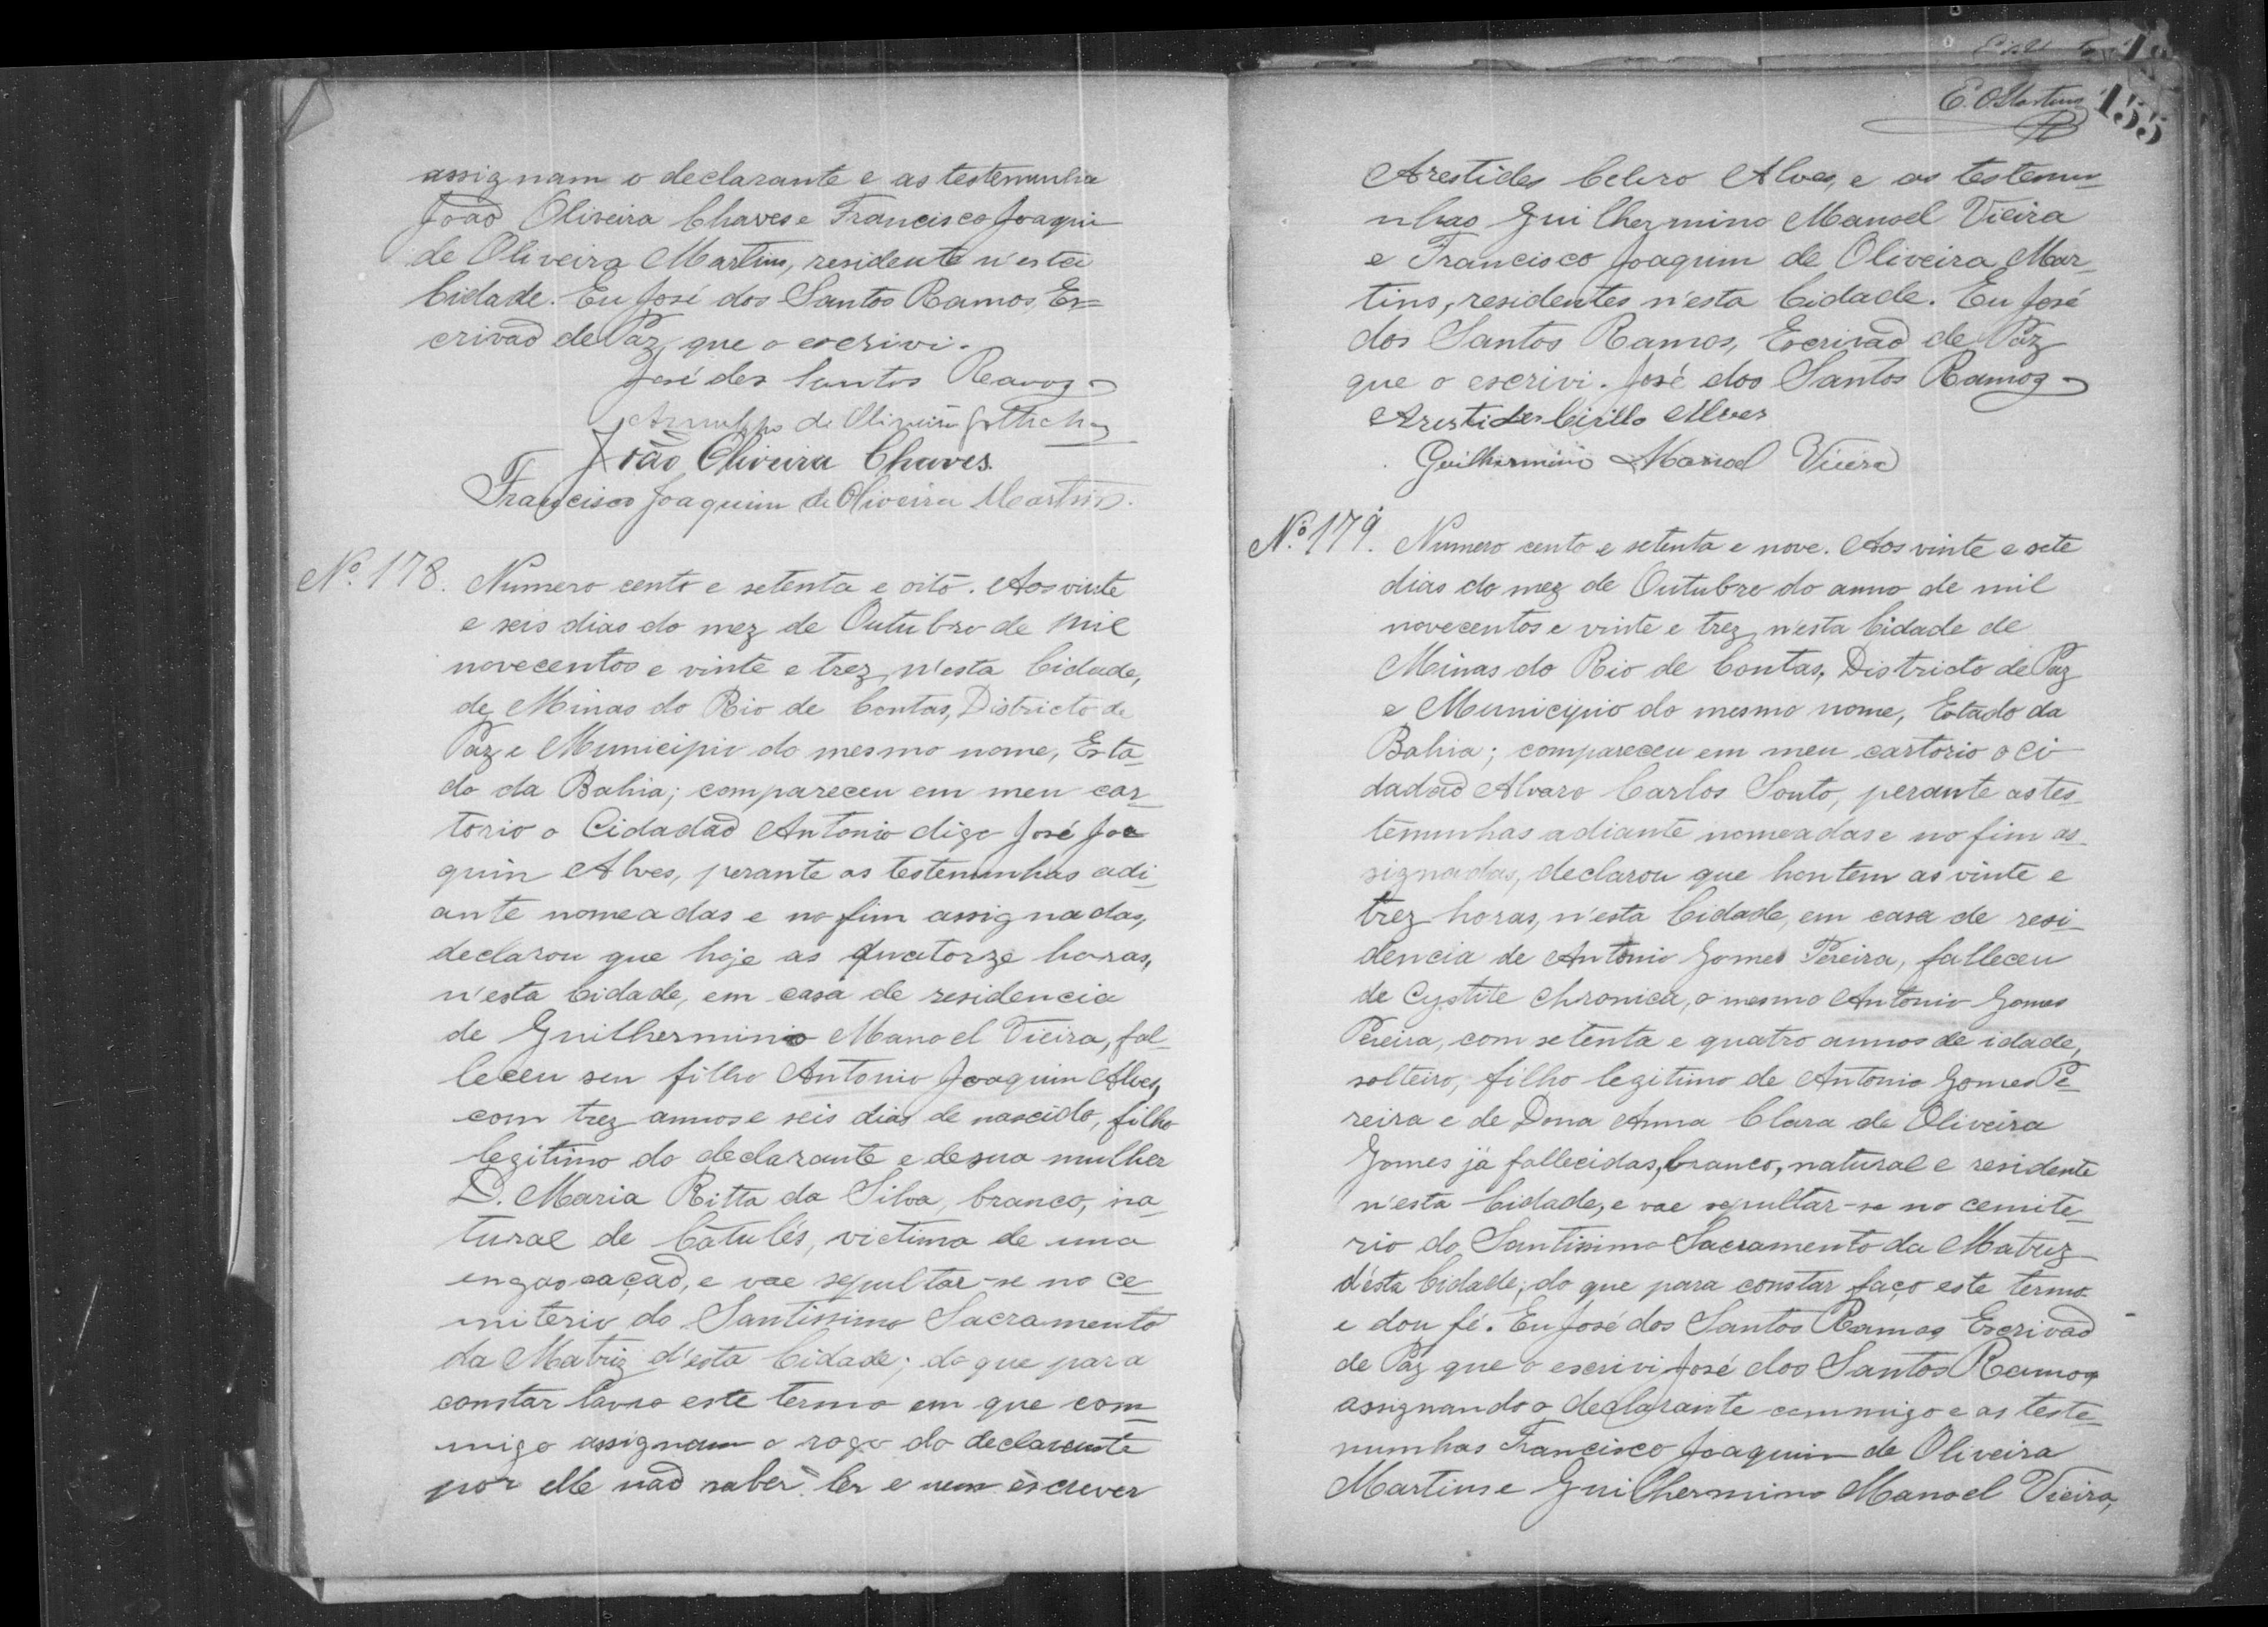 assignam o declarante e as testemunha
João Oliveira Chaves e Francisco Joaqui
de Oliveira Martins, residente n'esta
Cidade. Eu José dos Santos Ramos, Es=
crivaõ de Paz que o escrivi.
José dos Santos Ramos
de Oliveira
João Oliveira Chaves.
Francisco Joaquim de Oliveira Martins.
Nº. 178. Numero cento e setenta e oito. Aos vinte
e seis dias do mez de Outubro de mil
novecentos e vinte e trez, n'esta Cidade,
de Minas do Rio de Contas, Districto de
Paz e Municipio do mesmo nome, Esta-
do da Bahia; compareceu em meu car-
torio o Cidadaõ Antonio digo José Joa
quin Alves, perante as testemunhas adi-
ante nomeadas e no fim assignadas,
declarou que hoje as quatorze horas,
n'esta Cidade, em casa de residencia
de Guilhermino Manoel Vieira, fal-
leceu seu filho Antonio Joaquim Alves,
com trez annos e seis dias de nascido, filho
legitimo do declarante e de sua mulher
D. Maria Ritta da Silva, branco, na-
tural de Catulés, victima de uma
engascaçaõ, e vae sepultar-se no ce-
miterio do Santissimo Sacramento
da Matriz d'esta Cidade; do que para
constar lavro este termo em que com-
migo assignam o rogo do declarante
por elle naõ saber ler e nem escrever
E. O. Martins
155
Arestides Celiro Alves, e as testemu-
nhas Guilhermino Manoel Vieira
e Francisco Joaquim de Oliveira Mar-
tins, residentes n'esta Cidade. Eu José
dos Santos Ramos, Escrivaõ de Paz
que o escrivi. José dos Santos Ramos
Arestides Cirillo Alves
Guilhermino Manoel Vieira
Nº. 179. Numero cento e setenta e nove. Aos vinte e sete
dias do mez de Outubro do anno de mil
novecentos e vinte e trez, n'esta Cidade de
Minas do Rio de Contas, Districto de Paz
e Municipio do mesmo nome, Estado da
Bahia; compareceu em meu cartorio o ci-
dadaõ Alvaro Carlos Souto, perante as tes-
temunhas adiante nomeadas e no fim as-
signadas, declarou que hontem as vinte e
trez horas, n'esta Cidade, em casa de resi-
dencia de Antonio Gomes Pereira, falleceu
de Cystite Chronica, o mesmo Antonio Gomes
Pereira, com setenta e quatro annos de idade,
solteiro, filho legitimo de Antonio Gomes Pe-
reira e de Dona Anna Clara de Oliveira
Gomes já fallecidas, branco, natural e residente
n'esta Cidade, e vae sepultar-se no cemite-
rio do Santissimo Sacramento da Matriz
d'ésta Cidade; do que para constar faço este termo
e dou fé. Eu José dos Santos Ramos Escrivaõ
de Paz que o escrivi José dos Santos Ramos,
assignando o declarante commigo e as teste-
munhas Francisco Joaquim de Oliveira
Martins e Guilhermino Manoel Vieira,